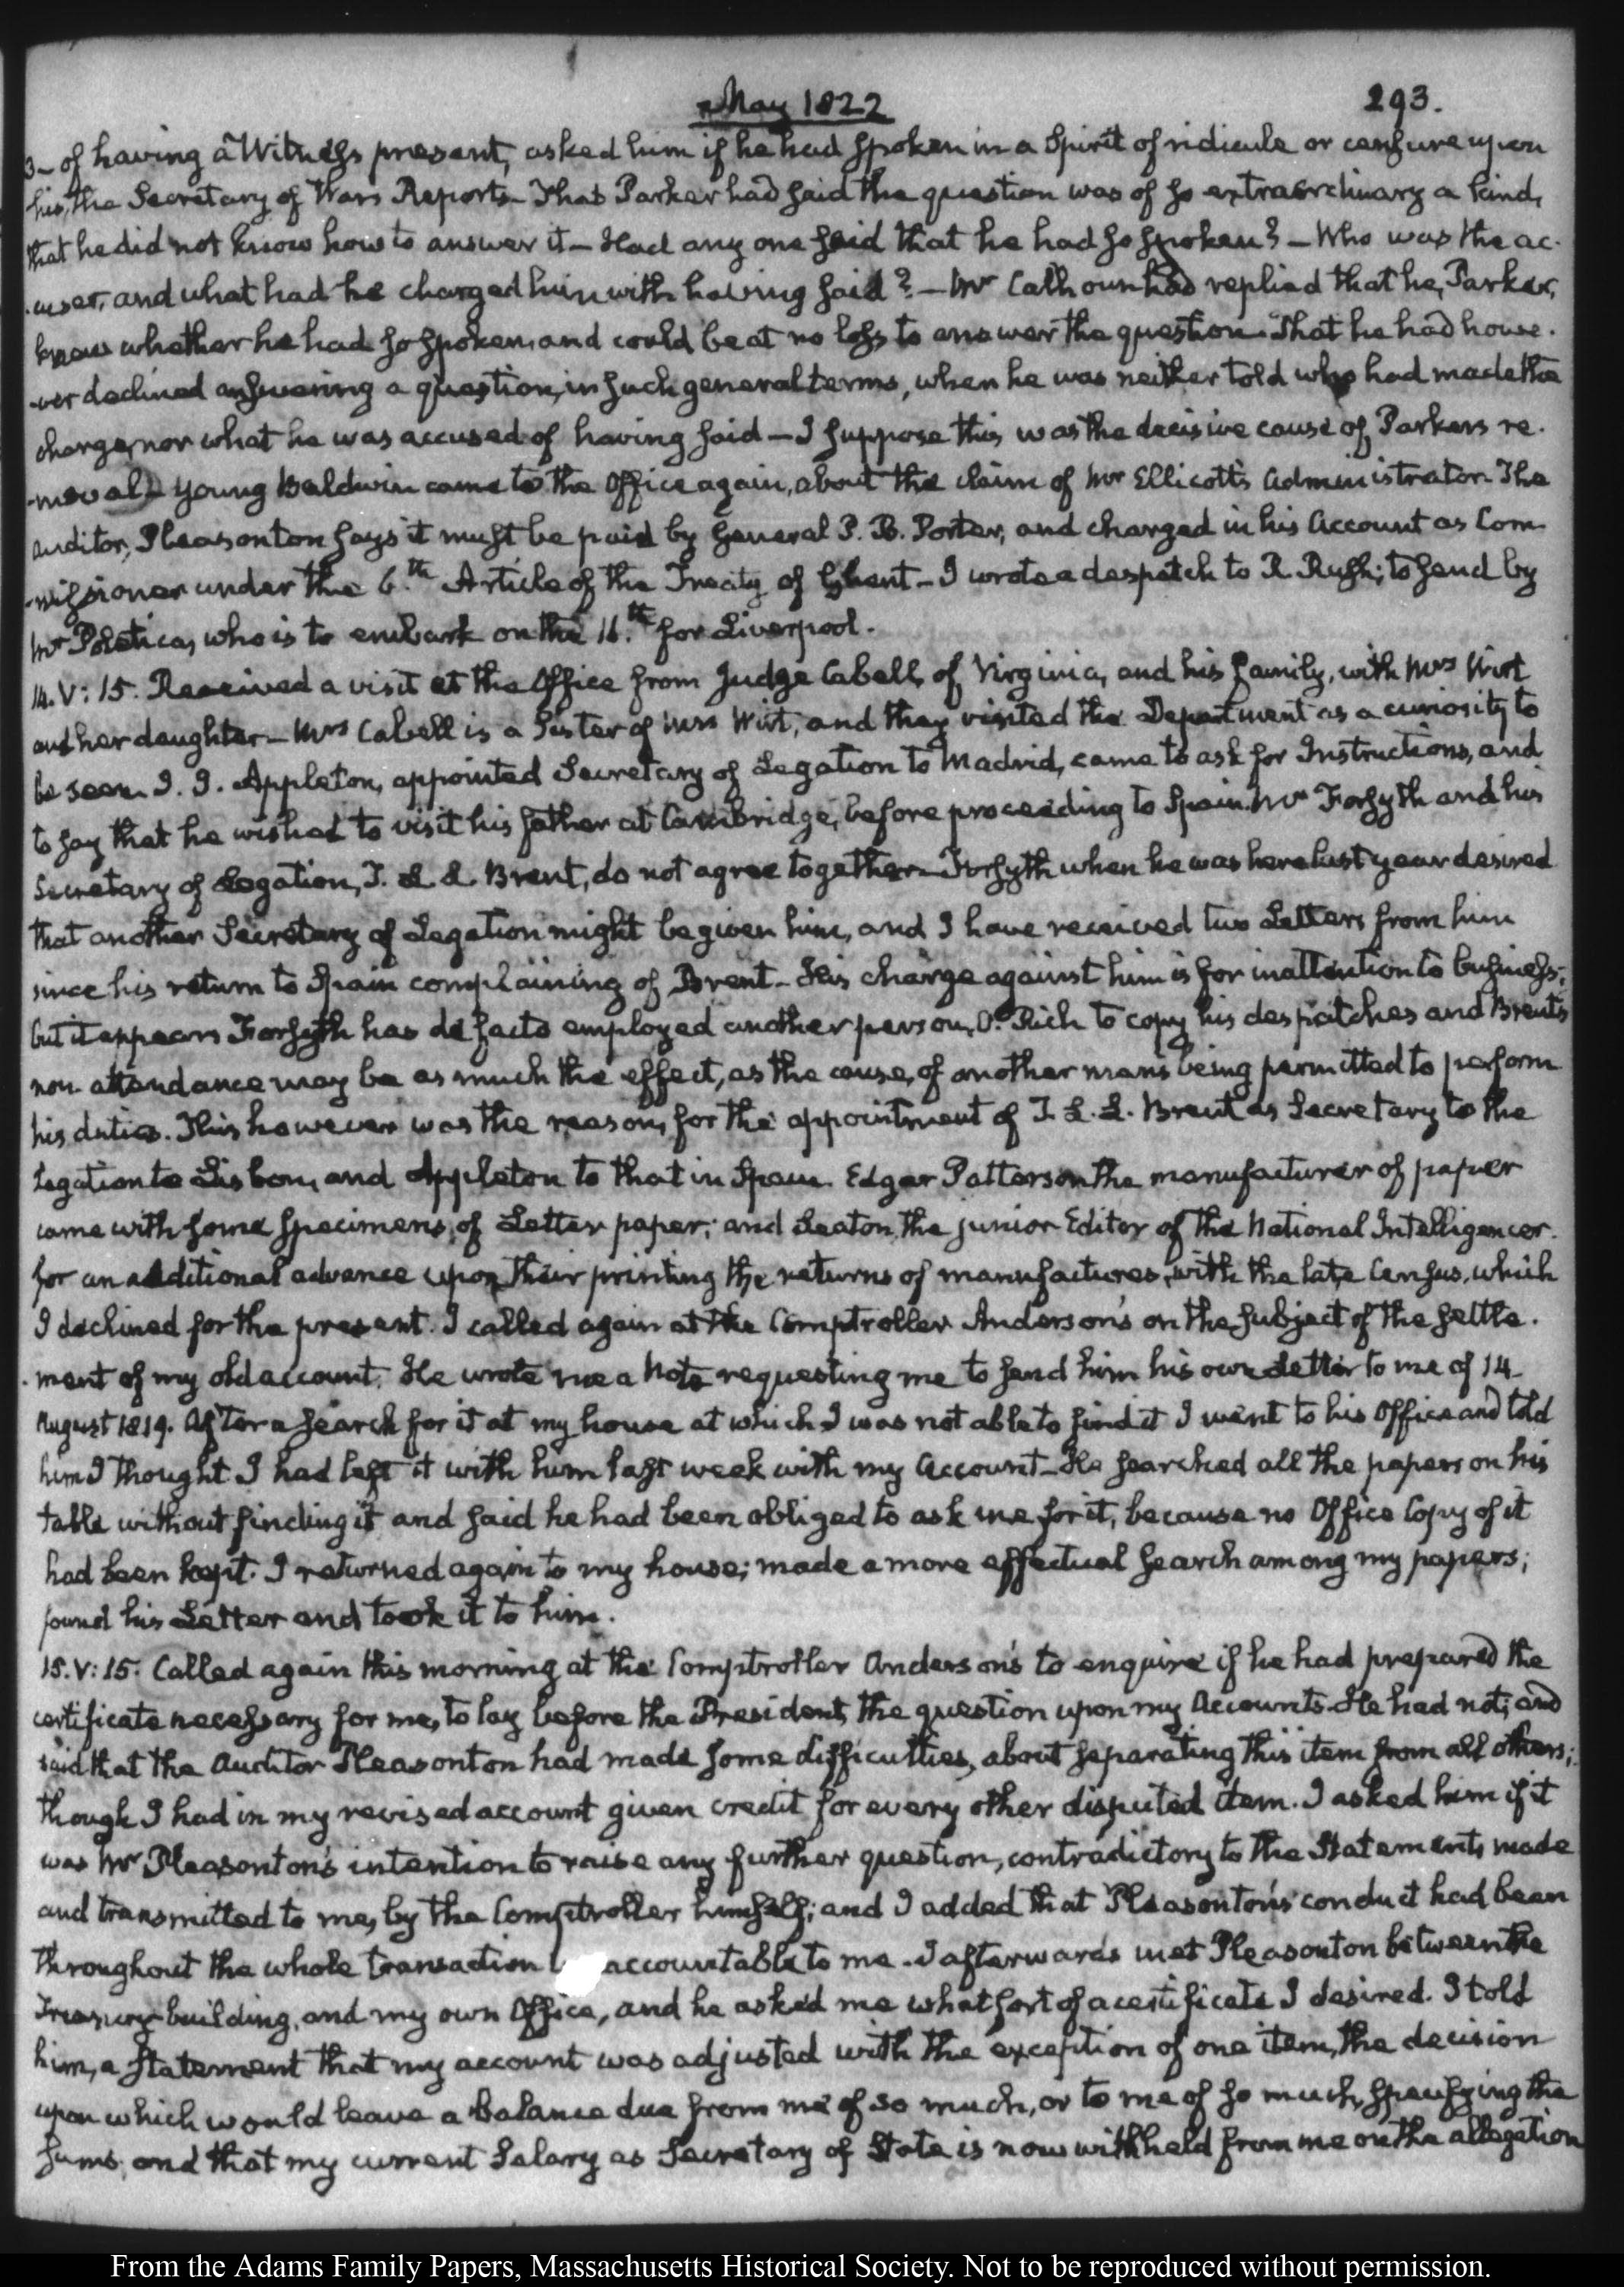 May 1822
293.
3– of having a Witness present, asked him if he had spoken in a Spirit of ridicule or censure upon
his, the Secretary of Wars Reports– That Parker had said the question was of so extraordinary a kind,
that he did not know how to answer it– Had any one said that he had so spoken?– Who was the ac-
-cuser, and what had he charged him with having said?– Mr Calhoun had replied that he, Parker,
knew whether he had so spoken, and could be at no loss to answer the question. That he had howe-
-ver declined answering a question, in such general terms, when he was neither told who had made the
charge, nor what he was accused of having said– I suppose this was the decisive cause of Parkers re-
-moval– Young Baldwin came to the Office again, about the claim of Mr Ellicott's Administrator. The
auditor, Pleasonton says it must be paid by General P. B. Porter, and charged in his Account as Com-
-missioner under the 6.th Article of the Treaty of Ghent– I wrote a despatch to R. Rush; to send by
Mr Poletica, who is to embark on the 16.th for Liverpool.
14. V: 15. Received a visit at the Office from Judge Cabell, of Virginia, and his family, with Mrs Wirt
and her daughter– Mrs Cabell is a Sister of Mrs Wirt, and they visited the Department as a curiosity to
be seen. J. J. Appleton, appointed Secretary of Legation to Madrid, came to ask for Instructions, and
to say that he wished to visit his father at Cambridge, before proceeding to Spain. Mr Forsyth and his
Secretary of Legation, T. L. L. Brent, do not agree together– Forsyth when he was here last year desired
that another Secretary of Legation might be given him, and I have received two Letters from him
since his return to Spain complaining of Brent– His charge against him is for inattention to business;
but it appears Forsyth has de facto employed another person, O. Rich to copy his despatches and Brents
non attendance may be as much the effect, as the cause, of another mans being permitted to perform
his duties. This however was the reason, for the appointment of T. L. L. Brent as Secretary to the
Legation to Lisbon, and Appleton to that in Spain. Edgar Patterson the manufacturer of paper
came with some specimens, of Letter paper; and Seaton, the junior Editor of the National Intelligencer.
for an additional advance upon their printing the returns of manufactures, with the late Census, which
I declined for the present. I called again at the Comptroller Anderson's on the subject of the settle-
-ment of my old account. He wrote me a Note requesting me to send him his own Letter to me of 14
August 1819. After a search for it at my house at which I was not able to find it I went to his Office and told
him I thought I had left it with him last week with my Account– He searched all the papers on his
table without finding it and said he had been obliged to ask me for it, because no Office Copy of it
had been kept. I returned again to my house; made a more effectual search among my papers;
found his Letter and took it to him.
15. V: 15. Called again this morning at the Comptroller Anderson's to enquire if he had prepared the
certificate necessary for me, to lay before the President, the question upon my Accounts. He had not; and
said that the Auditor Pleasonton had made some difficulties, about separating this item from all others;
though I had in my revised account given credit for every other disputed item. I asked him if it
was Mr Pleasonton's intention to raise any further question, contradictory to the Statements made
and transmitted to me, by the Comptroller himself; and I added that Pleasonton's conduct had been
throughout the whole transaction accountable to me. I afterwards met Pleasonton between the
Treasury building, and my own Office, and he asked me what sort of a certificate I desired. I told
him, a statement that my account was adjusted with the exception of one item, the decision
upon which would leave a balance due from me of so much, or to me of so much, specifying the
sums, and that my current Salary as Secretary of State is now withheld from me on the allegation
From the Adams Family Papers, Massachusetts Historical Society. Not to be reproduced without permission.